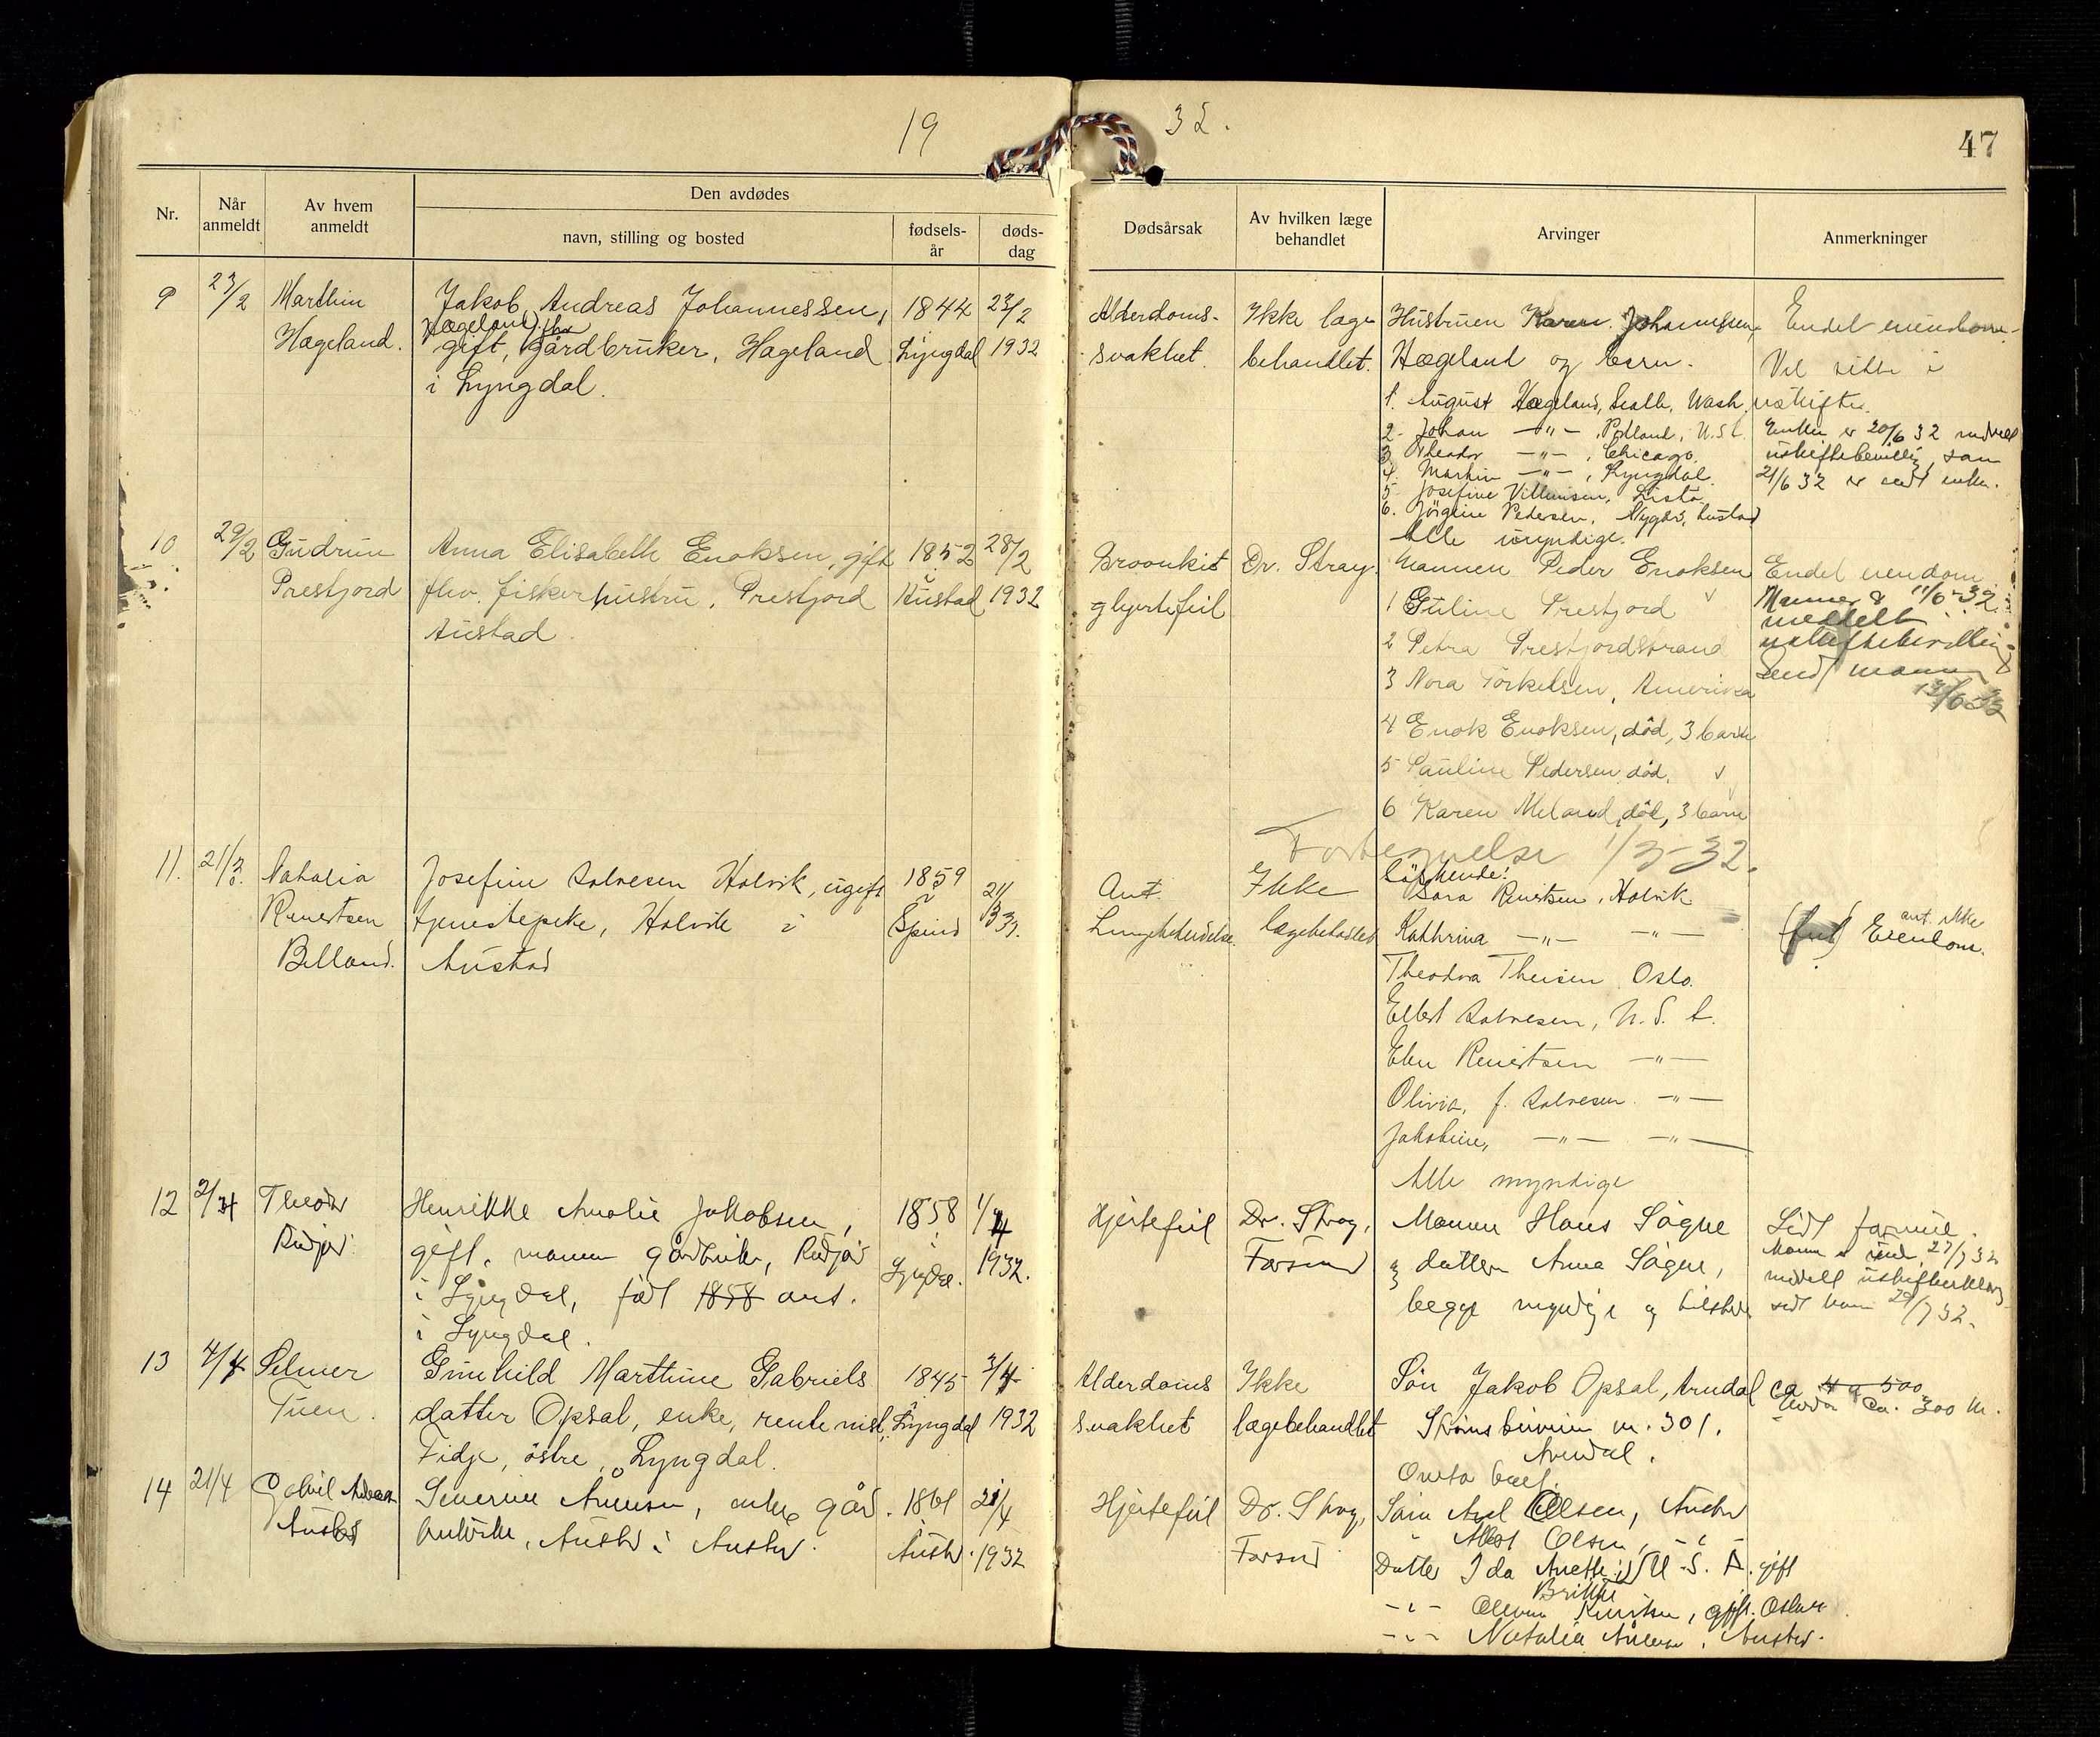 19 32.
47
Nr.
Når anmeldt
Av hvem anmeldt
Den avdødes
navn, stilling og bosted
fødsels-år
døds-dag
Dødsårsak
Av hvilken læge behandlet
Arvinger
Anmerkninger
9 23/2 Marthin Jakob Andreas Johannessen, 1844 23/2
Hægeland fhv
Hægeland. gift, Gårdbruker, Hægeland Lyngdal 1932
i Lyngdal.
Alderdoms- Ikke læge Hustruen Karen Johannessen, Endel eiendom.
svakhet. behandlet. Hægeland og barn. Vil sitte i
1. August Hægeland, Seattle, Wash. uskifte.
2. Johan —"— , Portland, U.S.A. Enken er 20/6 32 meddelt
3. Theodor —"— , Chicago. uskiftebevilling, som
4. Marthin —"— , Lyngdal. 21/6 32 er sendt enken.
5. Josefine Villumsen, Lista
6. Jörgine Pedersen, Nygård, Austad
Alle myndige.
10 29/2 Gudrun Anna Elisabeth Enoksen, gift 1852 28/2
Prestfjord fhv. fiskerhustru, Prestfjord Austad 1932
Austad.
Bronkit Dr. Stray. Mannen Peder Enoksen Endel eiendom
og hjertefeil 1 Guline Prestfjord Mannen er 11/6-32
meddelt
2 Petra Prestfjordstrand uskiftebevilling
3 Nora Torkelsen, Amerika sendt mannen
13/6 32
4 Enok Enoksen, død, 3 barn
5 Pauline Pedersen, død.
6 Karen Meland, død, 3 barn
Fortegnelse 1/3-32.
11. 21/3. Natalia Josefine Salvesen Holvik, ugift 1859 21/3 32.
Reinertsen tjenestepike, Holvik i Spind
Belland. Austad
Ant. Ikke Söskende:
Lungebetendelse. lægebehandlet Sara Reinertsen, Holvik
Kathrina —"— —"— ant. ikke
Eiendom.
Theodora Theisen Oslo.
Elbert Salvesen, U.S.A.
Eben Reinertsen —"—
Olivia, f. Salvesen —"—
Jakobine, —"— —"—
Alle myndige
12 2/4 Theodor Henrikke Amalie Jakobsen, 1858 1/4
gift, mannen gårdbruker, Lyngdal. 1932.
i Lyngdal, født 1858 ant.
i Lyngdal.
Hjertefeil Dr. Stray, Mannen Hans Sögne Lidt formue.
Farsund og datter Anna Sögne, Mannen er 27/7 32
meddelt uskifteerklæring
begge myndige og tilstede sendt ham 29/7 32.
13 4/4 Selmer Gunhild Marthine Gabriels 1845 3/4
Tuen. datter Opsal, enke, rentenist, Lyngdal 1932
Fidje, östre, Lyngdal.
Alderdoms Ikke Sön Jakob Opsal, Arendal ca 4 a 500
svakhet lægebehandlet Strömsbuveien nr. 301. ca. 300 kr.
Arendal.
14 21/4 Andreas Severine Årnesen, enke gård. 1861 21/4
Austad bruker, Austad i Austad. Austad. 1932
Hjertefeil Dr. Stray, Sön Axel Olsen, Austad
Farsund Albert Olsen, —"—
Datter Ida Anette i U.S.A. gift
Britthe
—"— Reinertsen, gift. Oslo
—"— Natalia , Austad.